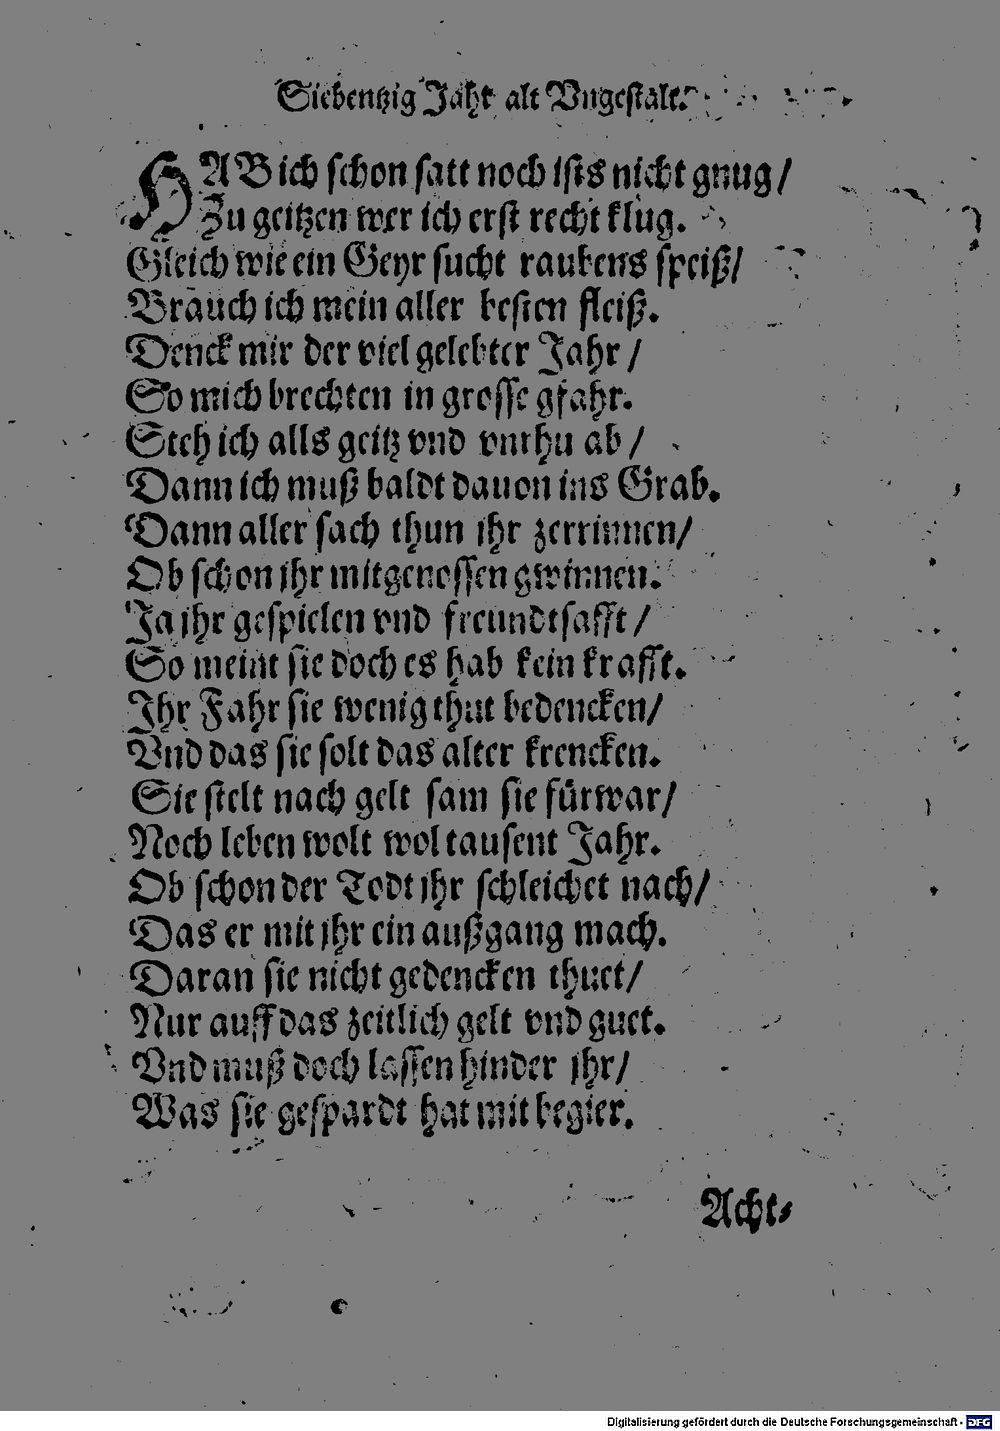 Siebentzig Jahr alt Vngestalt.
HAB ich schon satt noch ists nicht gnug/
Zu geitzen wer ich erst recht klug.
Gleich wie ein Geyr sucht raubens speiß/
Brauch ich mein aller besten fleiß.
Denck mir der viel gelebter Jahr/
So mich brechten in grosse gfahr.
Steh ich alls geitz vnd vnrhu ab/
Dann ich muß baldt dauon ins Grab.
Dann aller sach thun jhr zerrinnen/
Ob schon jhr mitgenossen gwinnen.
Ja jhr gespielen vnd freundtsafft/
So meint sie doch es hab kein krafft.
Ihr Fahr sie wenig thut bedencken/
Vnd das sie solt das alter krencken.
Sie stelt nach gelt sam sie fürwar/
Noch leben wolt wol tausent Jahr.
Ob schon der Todt jhr schleichet nach/
Das er mit jhr ein außgang mach.
Daran sie nicht gedencken thuet/
Nur auff das zeitlich gelt vnd guet.
Vnd muß doch lassen hinder jhr/
Was sie gespardt hat mit begier.
Acht⸗
Digitalisierung gefördert durch die Deutsche Forschungsgemeinschaft - DFG